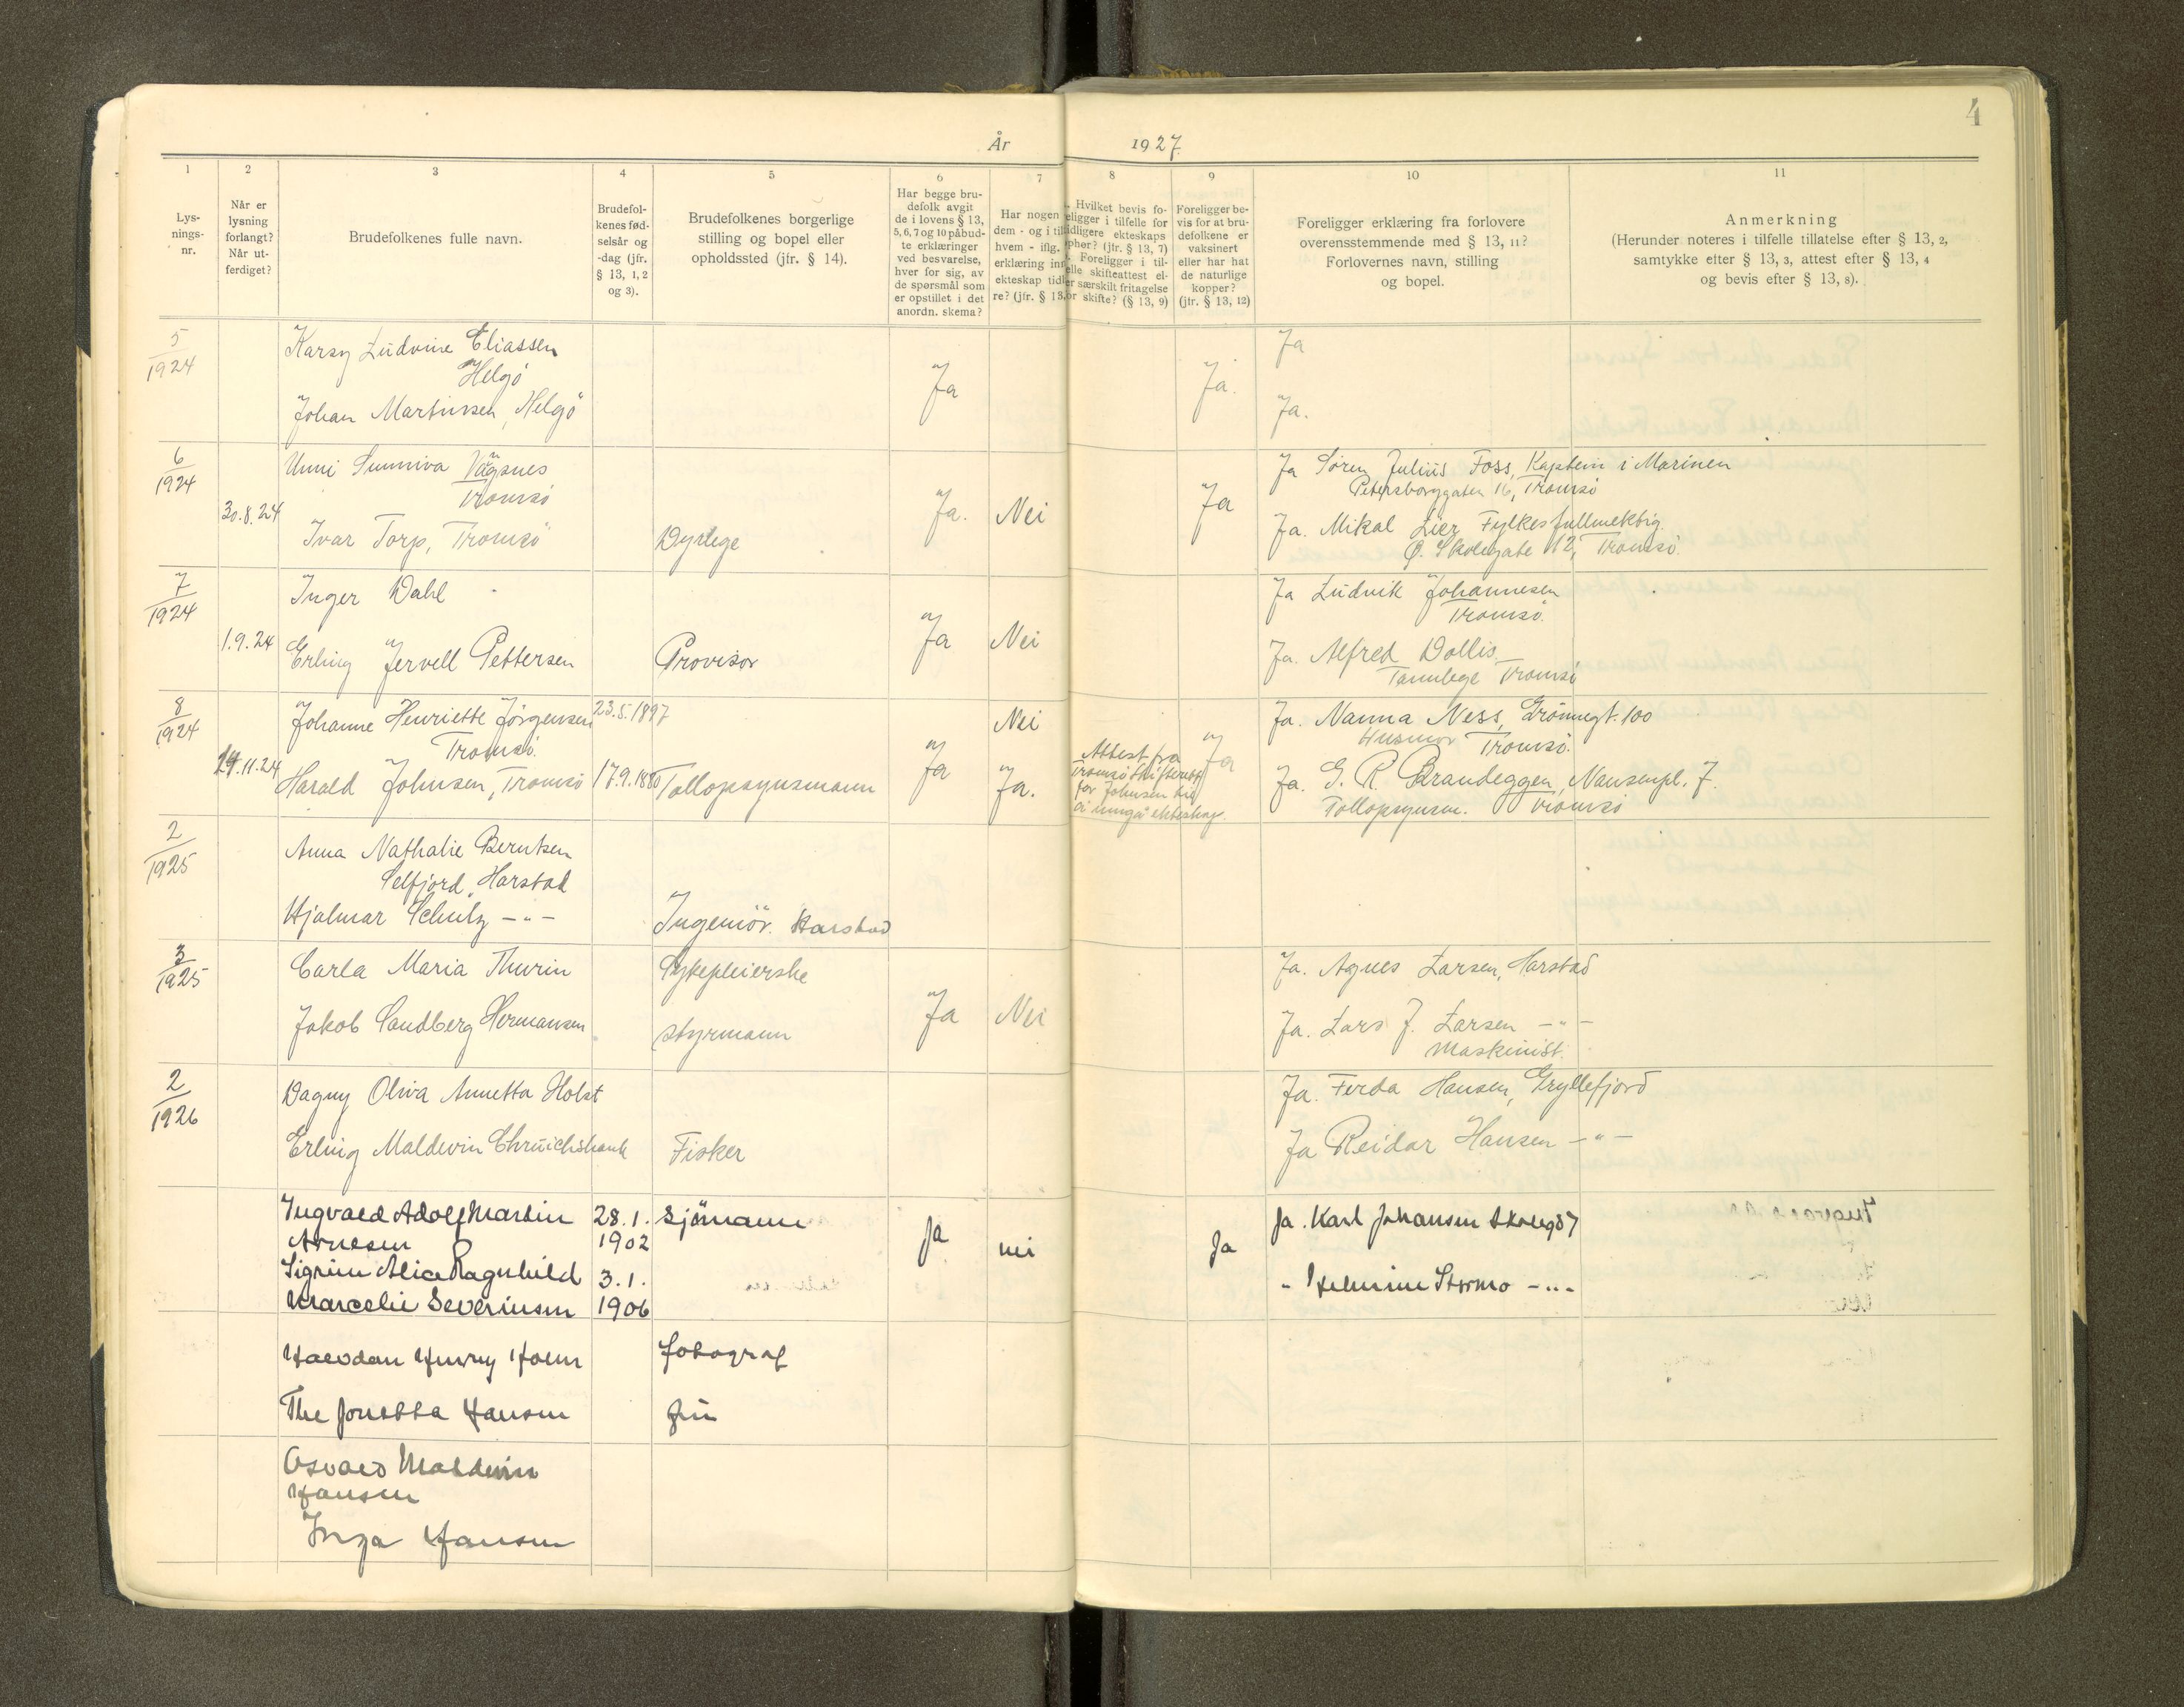 4
År 1927.
1 2 3 4 5 6 7 8 9 10 11
Lys-
nings-
nr.
Når er
lysning
forlangt?
Når ut-
ferdiget?
Brudefolkenes fulle navn.
Brudefol-
kenes fød-
selsår og
-dag (jfr.
§ 13, 1, 2
og 3).
Brudefolkenes borgerlige
stilling og bopel eller
opholdssted (jfr. § 14).
Har begge bru-
defolk avgit
de i lovens § 13,
5, 6, 7 og 10 påbud-
te erklæringer
ved besvarelse,
hver for sig, av
de spørsmål som
er opstillet i det
anordn. skema?
Har nogen
dem - og i til
hvem - iflg.
erklæring inn
ekteskap tidl
re? (jfr. § 13,
Hvilket bevis fo-
religger i tilfelle for
tidligere ekteskaps
opher? (jfr. § 13, 7)
Foreligger i til-
felle skifteattest el-
er særskilt fritagelse
for skifte? (§ 13, 9)
Foreligger be-
vis for at bru-
defolkene er
vaksinert
eller har hat
de naturlige
kopper?
(jfr. § 13, 12)
Foreligger erklæring fra forlovere
overensstemmende med § 13, 11?
Forlovernes navn, stilling
og bopel.
Anmerkning
(Herunder noteres i tilfelle tillatelse efter § 13, 2,
samtykke efter § 13, 3, attest efter § 13, 4
og bevis efter § 13, 8).
5
1924
Karsy Ludvine Eliassen
Helgö
Johan Martinssen, Helgö
Ja
Ja.
Ja
Ja.
6
1924
30.8.24
Unni Sunniva Vågsnes
Tromsö
Ivar Torp, Tromsö
Dyrlege
Ja.
Nei
Ja
Ja Sören Julius Foss, Kaptein i Marinen
Petersborggaten 16, Tromsö
Ja. Mikal Lier, Fylkesfullmektig.
Ø. Skolegate 12, Tromsö.
7
1924
1.9.24
Inger Dahl
Erling Jervell Pettersen
Provisor
Ja
Nei
Ja Ludvik Johannesen
Tromsö.
Ja. Alfred Dollis
Tannlege Tromsö
8
1924
24.11.24
Johanne Henriette Jörgensen
23.5.1897
Tromsö.
Harald Johnsen, Tromsö
17.9.1880
Tollopsynsmann
Ja
Nei
Ja.
Attest fra
Tromsö Skifterett
for Johnsen
inngå ekteskap.
Ja
Ja. Nanna Ness, Grönnegt. 100
Husmor Tromsö.
Ja. G. R. Brandeggen, Nansenpl. 7.
Tollopsynsm. Tromsö
2
1925
Anna Nathalie Berntsen
Selfjord, Harstad
Hjalmar Schulz -"-
Ingeniör. Harstad
3
1925
Carla Maria Thurin
Sykepleierske
Jakob Sandberg Hermansen
Styrmann
Ja
Nei
Ja. Agnes Larsen, Harstad
Ja. Lars J. Larsen -"-
Maskinist.
2
1926
Dagny Oliva Annetta Holst
Erling Maldevin Chruickshank
Fisker
Ja. Ferda Hansen, Gryllefjord
Ja Reidar Hansen -"-
Ingvald Adolf Martin
Arnesen
28.1.
1902
Sjömann
Sigrun Alice Ragnhild
Marcelie Severinsen
3.1.
1906
Ja
nei
Ja
Ja. Karl Johansen Skorgöy
- Helmine Stormo -"-
Halvdan Henry Holm
fotograf
The Jonetta Hansen
Osvald Maldevin
Hansen
Inga Hansen